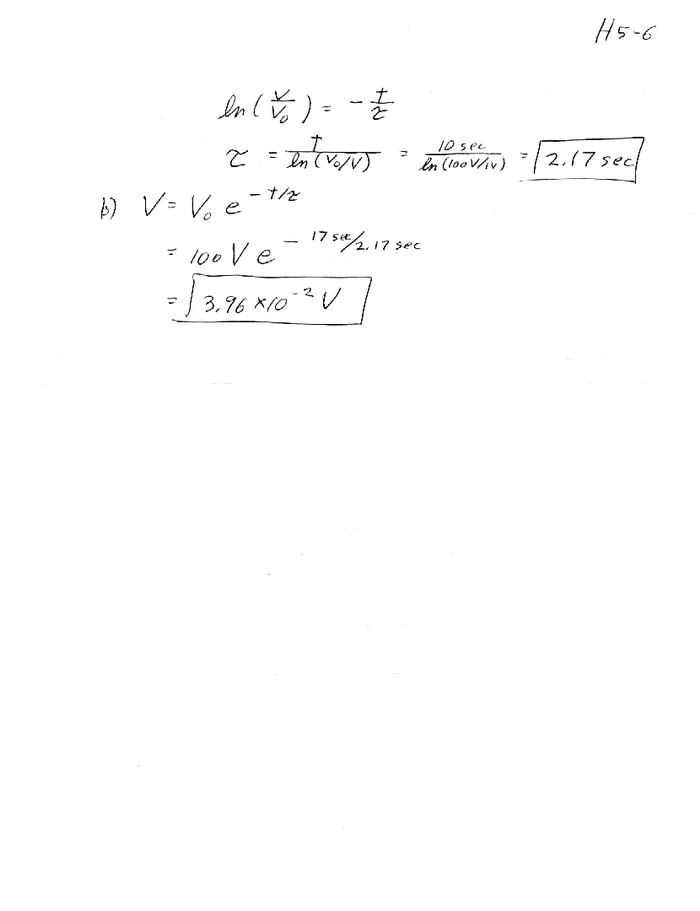 H5-6
ln(V/V₀) = - t/τ
τ = t/ln(V₀/V) = 10 sec/ln(100V/1V) = 2.17 sec
b) V = V₀ e^-t/τ
= 100 V e^-17 sec/2.17 sec
= 3.96 ×10^-2 V